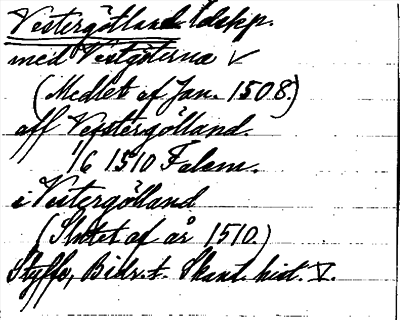 Vestergötland ldskp.
med Vestgöterna √
(Medlet af Jan. 1508.)
aff Vesstergölland.
1/6 1510 Falem.
i Vestergölland
(Slutet af år 1510.)
Styffe, Bidr. t. Skand. hist. V.